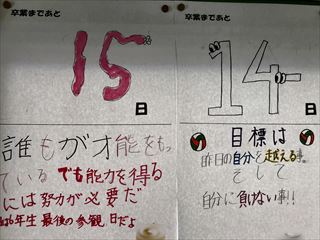 卒業まであと
15
日
誰もが才能をもっ
ている でも能力を得る
には努力が必要だ
6年生 最後の参観日だよ
卒業まであと
14
日
目標は
昨日の自分を越える事
そして
自分に負けない事!!